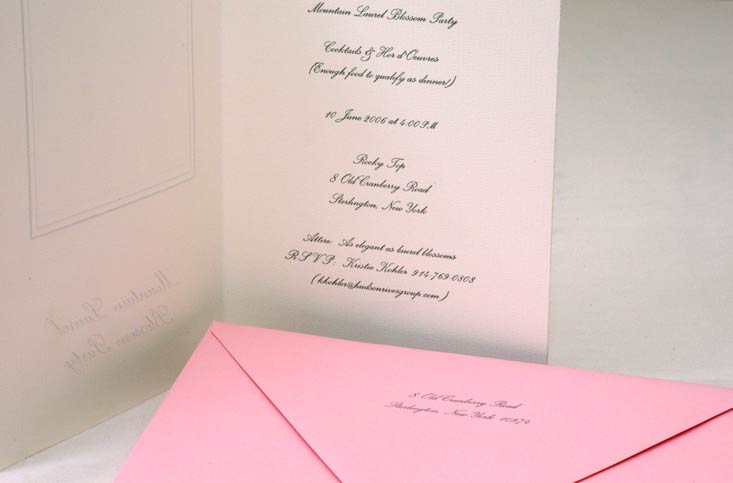 Mountain Laurel Blossom Party
Cocktails & Hor d'Oeuvres
(Enough food to qualify as dinner!)
10 June 2006 at 4:00 P.M
Rocky Top
8 Old Cranberry Road
Sterlington, New York
Attire: As elegant as laurel blossoms
R.S.V.P. Kristie Kohler 914.769.0808
(kkohler@hudsonrivergroup.com)
Mountain Laurel
Blossom Party
8 Old Cranberry Road
Sterlington, New York 10974